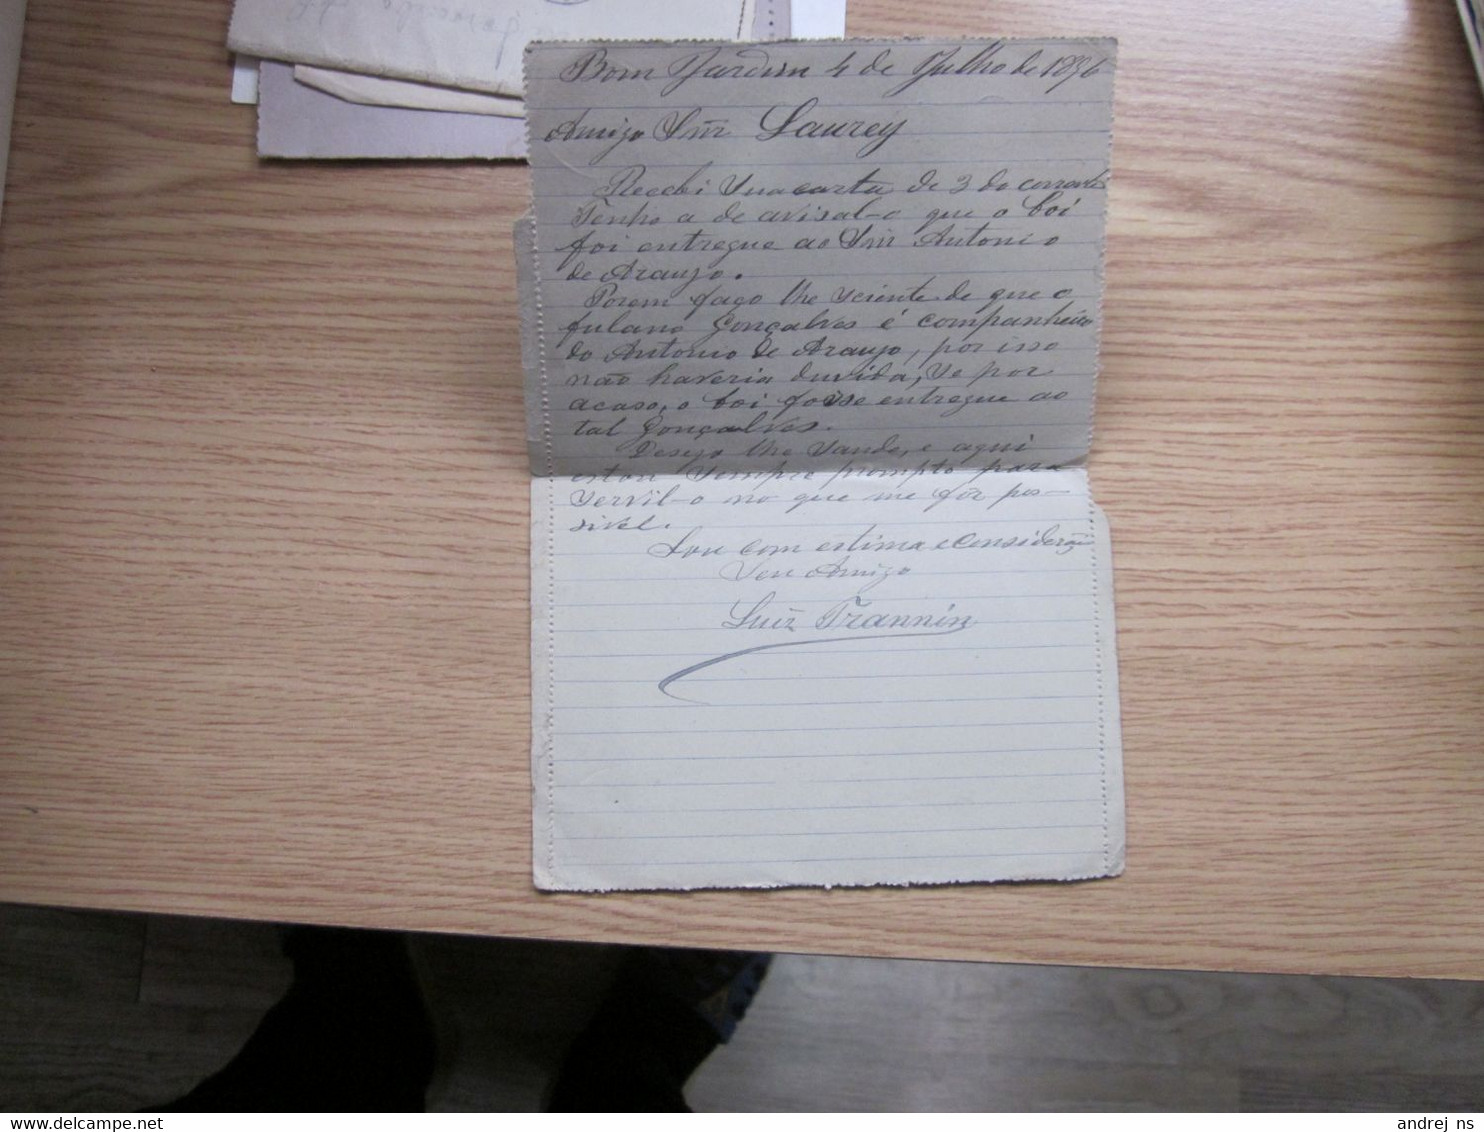 Bom Jardim 4 de Julho de 1896
Amigo Snr Laurey
Recebi sua carta de 3 do corrente
Tenho a de avisal-o que o boi
foi entregue ao Snr Antonio
de Araujo.
Porem faço lhe sciente de que o
fulano Gonçalves é companheiro
do Antonio de Araujo, por isso
não haveria duvida, se por
acaso, o boi foisse entregue ao
tal Gonçalves.
Desejo lhe saude, e aqui
estou sempre prompto para
servil-o no que me for pos-
sivel.
Sou com estima e consideração
Seu Amigo
Luiz Trannin
andrej_ns
www.delcampe.net